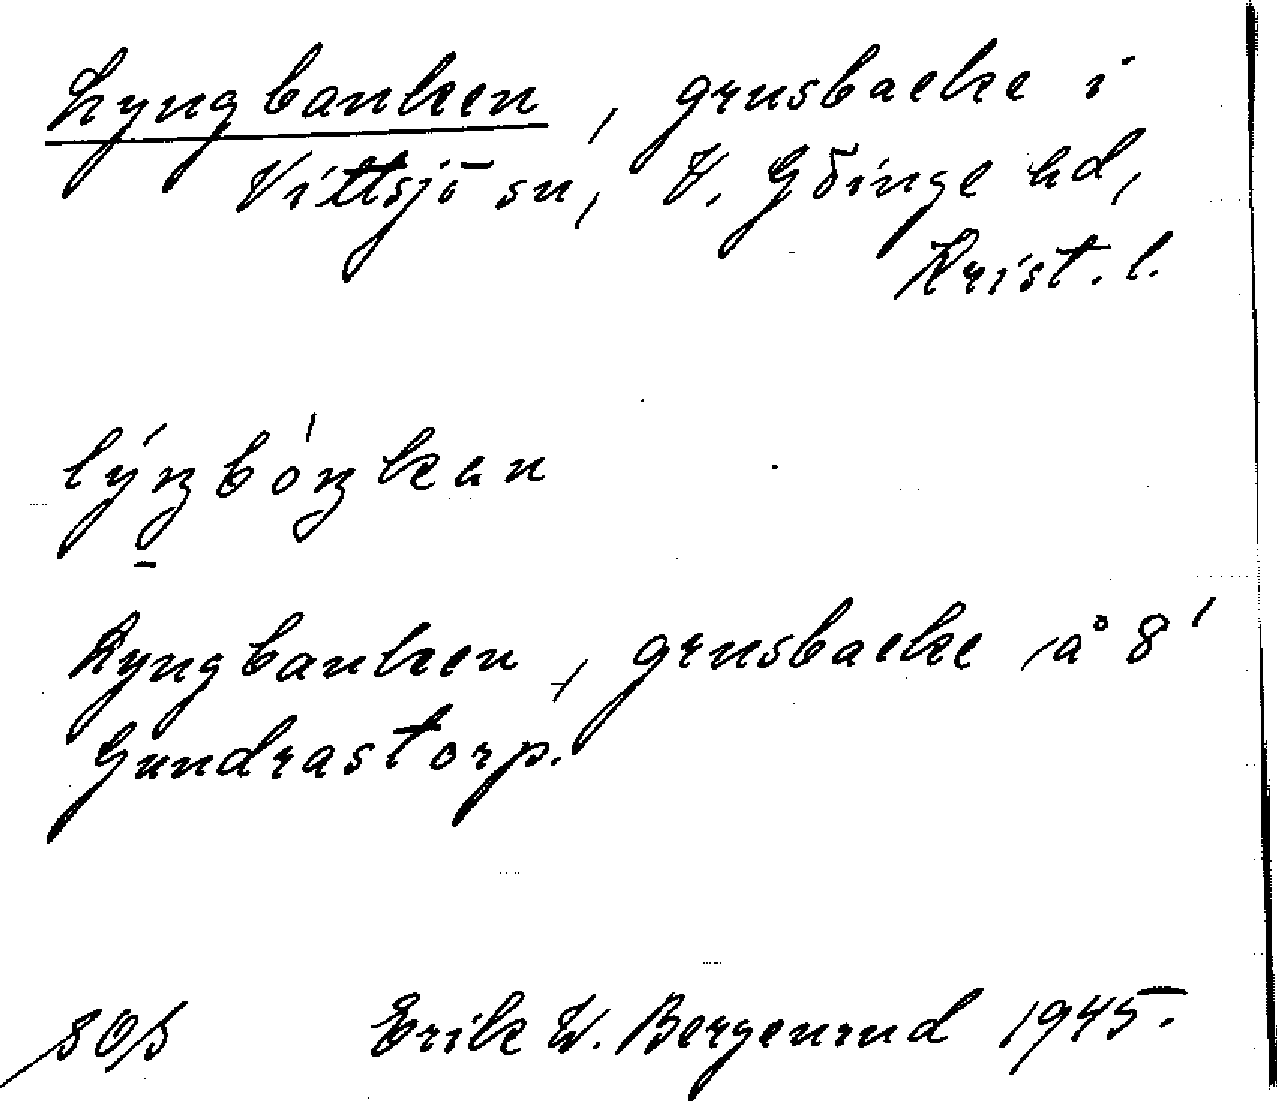 Lyngbanken, grusbacke i
Vittsjö sn, V. Göinge hd,
Krist. l.
lýŋbóŋkan
Lyngbanken, grusbacke å 8'
Gundrastorp.
Erik W. Bergenrud 1945.